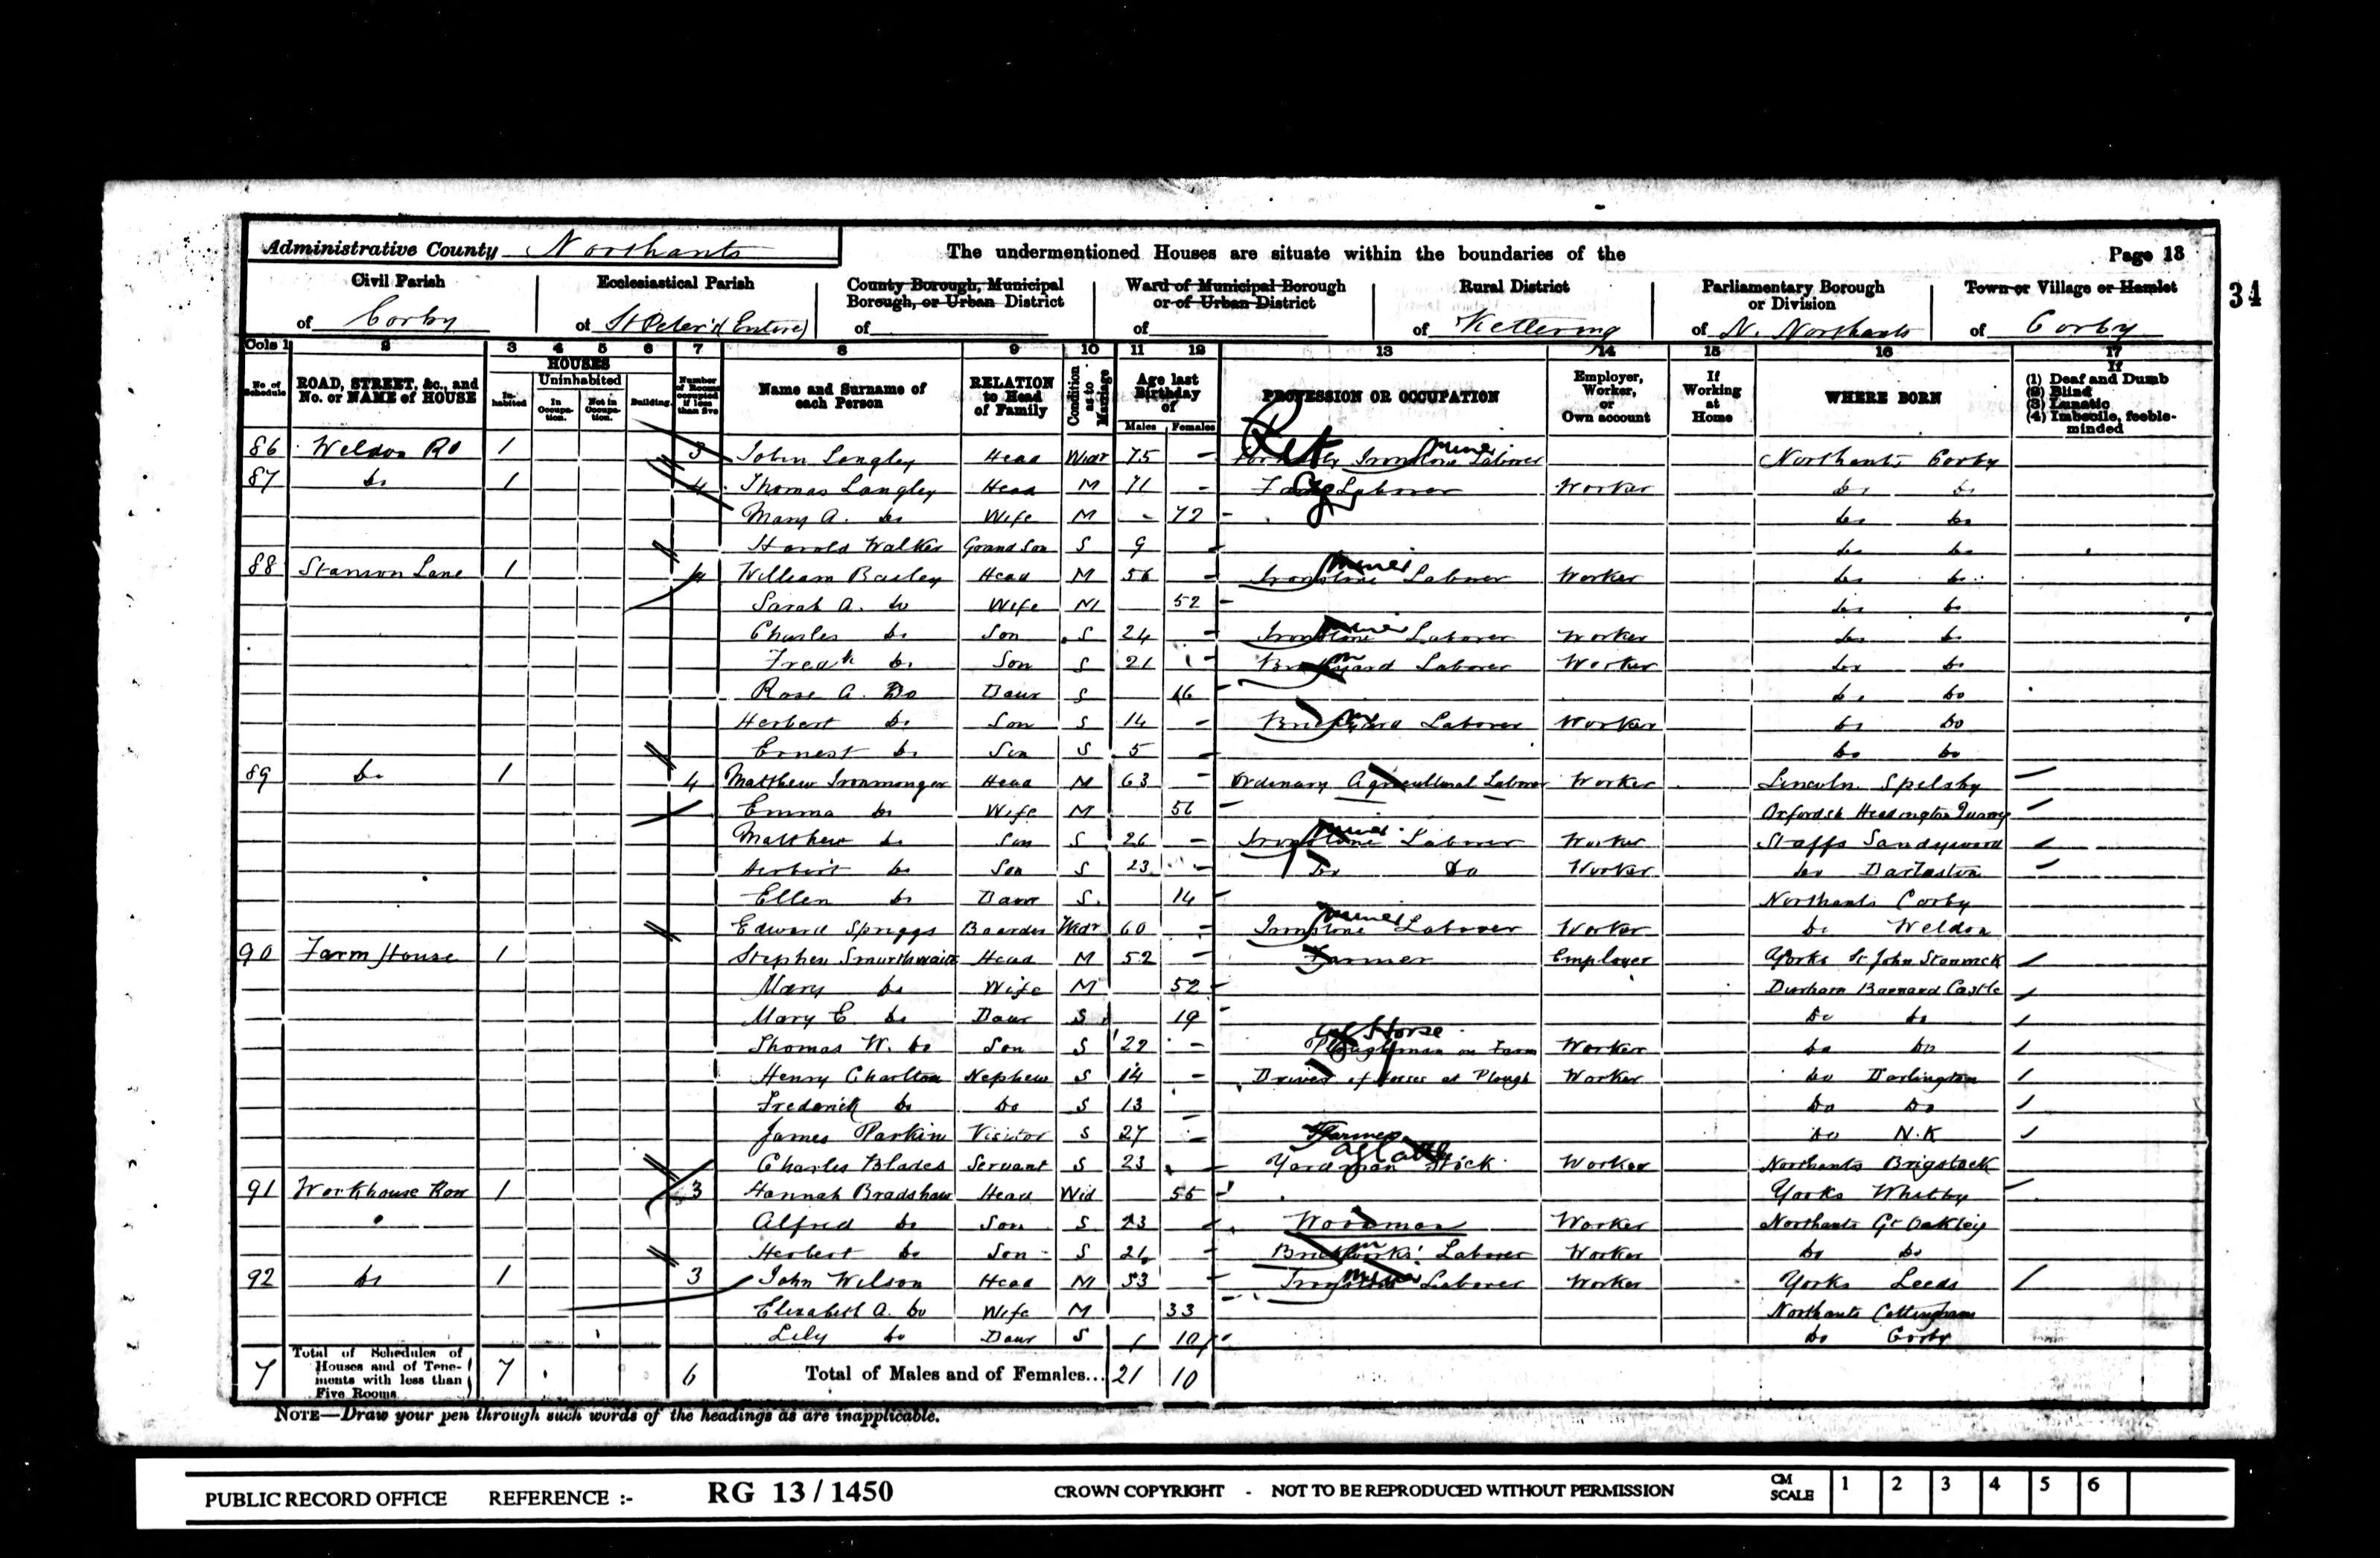 Administrative County Northants The undermentioned Houses are situate within the boundaries of the Page 13
34
Civil Parish of Corby
Ecclesiastical Parish of St Peter's (Entire)
County Borough, Municipal Borough, or Urban District of
Ward of Municipal Borough or of Urban District of
Rural District of Kettering
Parliamentary Borough or Division of N. Northants
Town or Village or Hamlet of Corby
Cols 1 2 3 4 5 6 7 8 9 10 11 12 13 14 15 16 17
No. of Schedule
ROAD, STREET, &c., and No. or NAME of HOUSE
HOUSES
Inhabited
Uninhabited
In Occupation.
Not in Occupation.
Building.
Number of Rooms occupied if less than five
Name and Surname of each Person
RELATION to Head of Family
Condition as to Marriage
Age last Birthday of
Males Females
PROFESSION OR OCCUPATION
Employer, Worker, or Own account
If Working at Home
WHERE BORN
If
(1) Deaf and Dumb
(2) Blind
(3) Lunatic
(4) Imbecile, feeble-minded
86 Weldon Rd 1 3 John Langley Head Widr 75 - Ret Ironstone miner Laborer Northants Corby
87 do 1 4 Thomas Langley Head M 71 - Laborer Worker do do
Mary A. do Wife M - 72 - do do
Harold Walker Grand Son S 9 do do
88 Stanion Lane 1 4 William Basley Head M 56 - Ironstone miner Laborer Worker do do
Sarah A. do Wife M 52 - do do
Charles do Son S 24 - Ironstone miner Laborer Worker do do
Fredk do Son S 21 - Brickyard Laborer Worker do do
Rose A. Do Daur S 16 - do do
Herbert do Son S 14 - Brickyard Laborer Worker do do
Ernest do Son S 5 - do do
89 do 1 4 Matthew Ironmonger Head M 63 - Ordinary Agricultural Laborer Worker Lincoln Spelsby
Emma do Wife M 56 - Oxfordsh Headington Quarry
Matthew do Son S 26 - Ironstone miner Laborer Worker Staffs
Herbert do Son S 23 - Do Do Worker do Darlaston
Ellen do Daur S. 14 - Northants Corby
Edward Spriggs Boarder Widr 60 - Ironstone miner Laborer Worker do Weldon
90 Farm House 1 Stephen Smurthwaite Head M 52 - Farmer Employer Yorks St John Stanwick
Mary do Wife M 52 - Durham Barnard Castle
Mary E. do Daur S 19 - do do
Thomas W. do Son S 22 - Horse Ploughman on Farm Worker do do
Henry Charlton Nephew S 14 - Driver of Horses at Plough Worker do Darlington
Frederick do Do S 13 - Do Do
James Parkin Visitor S 27 - Farmer do N.K
Charles Blades Servant S 23 - Yardman Stock Worker Northants Brigstock
91 Workhouse Row 1 3 Hannah Bradshaw Head Wid 55 - Yorks Whitby
Alfred do Son S 23 - Woodman Worker Northants Gt Oakley
Herbert do Son S 21 - Brickworks' Laborer Worker do do
92 do 1 3 John Wilson Head M 33 - Ironstone miner Laborer Worker Yorks Leeds
Elizabeth A. Do Wife M 33 - Northants Cottingham
Lily do Daur S 10 - do Corby
7 Total of Schedules of Houses and of Tenements with less than Five Rooms 7 6 Total of Males and of Females... 21 10
NOTE—Draw your pen through such words of the headings as are inapplicable.
PUBLIC RECORD OFFICE REFERENCE :- RG 13 / 1450 CROWN COPYRIGHT - NOT TO BE REPRODUCED WITHOUT PERMISSION CM SCALE 1 2 3 4 5 6